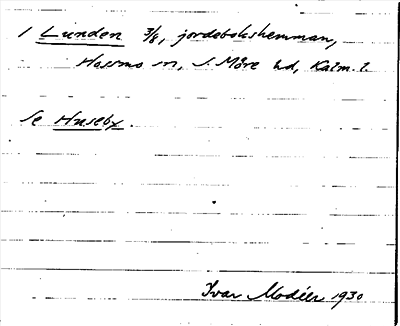 1 Lunden 3/8, jordebokshemman,
Hossmo sn, S. Möre hd, Kalm. l.
Se Huseby.
Ivar Modéer 1930